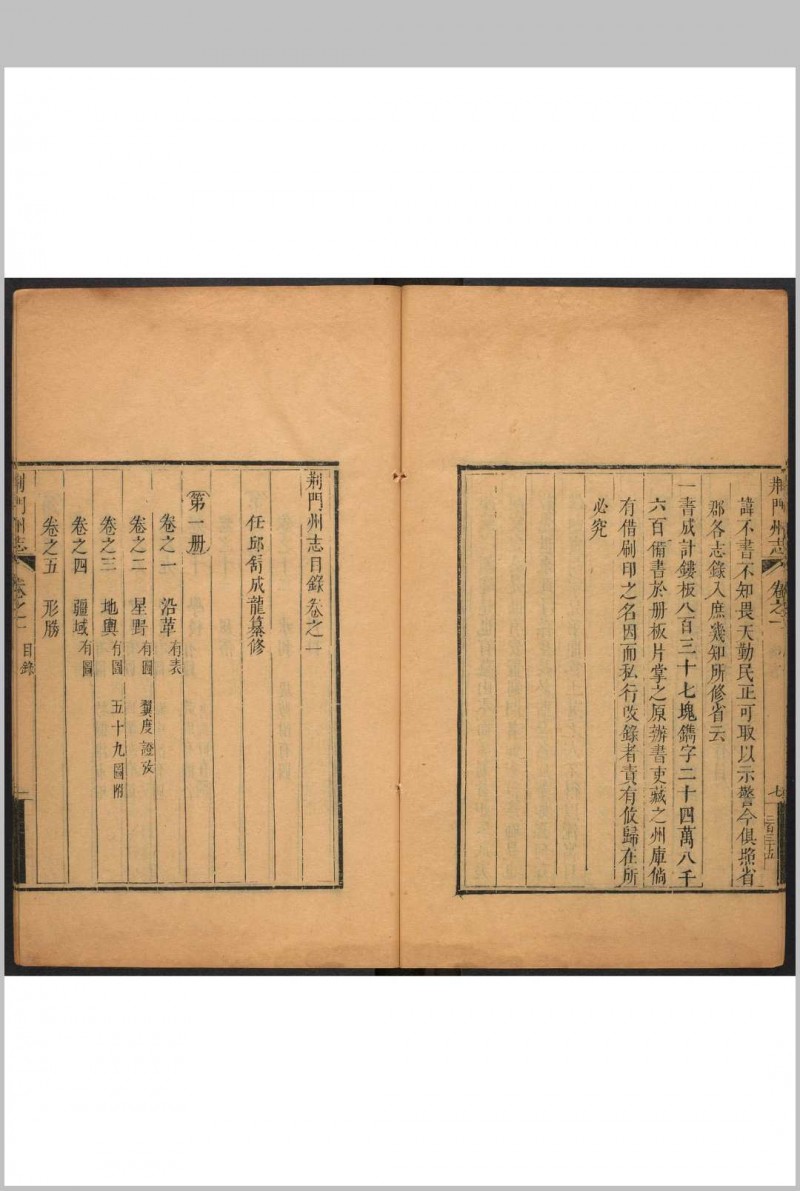 荆門州志
卷之一
七
三百三十五
諱不書不知畏天勤民正可取以示警今俱照省
郡各志錄入庶幾知所修省云
一書成計鏤板八百三十七塊鐫字二十四萬八千
六百備書於册板片掌之原辦書吏藏之州庫倘
有借刷印之名因而私行改錄者責有攸歸在所
必究
荆門州志目錄卷之一
任邱舒成龍纂修
第一册
卷之一 沿革 有表
卷之二 星野 有圖 翼度證攷
卷之三 地輿 有圖 五十九圖附
卷之四 疆域 有圖
卷之五 形勝
荆門州志
卷之一
目錄
一